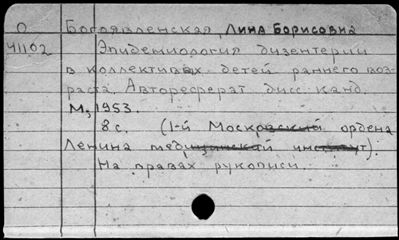 О Богоявленская, Лина Борисовна
41102 Эпидемиология дизентерии
в коллективах детей раннего воз-
раста. Автореферат дисс. канд.
М, 1953.
8 с. (1-й Московский ордена
Ленина медицинский институт).
На правах рукописи.